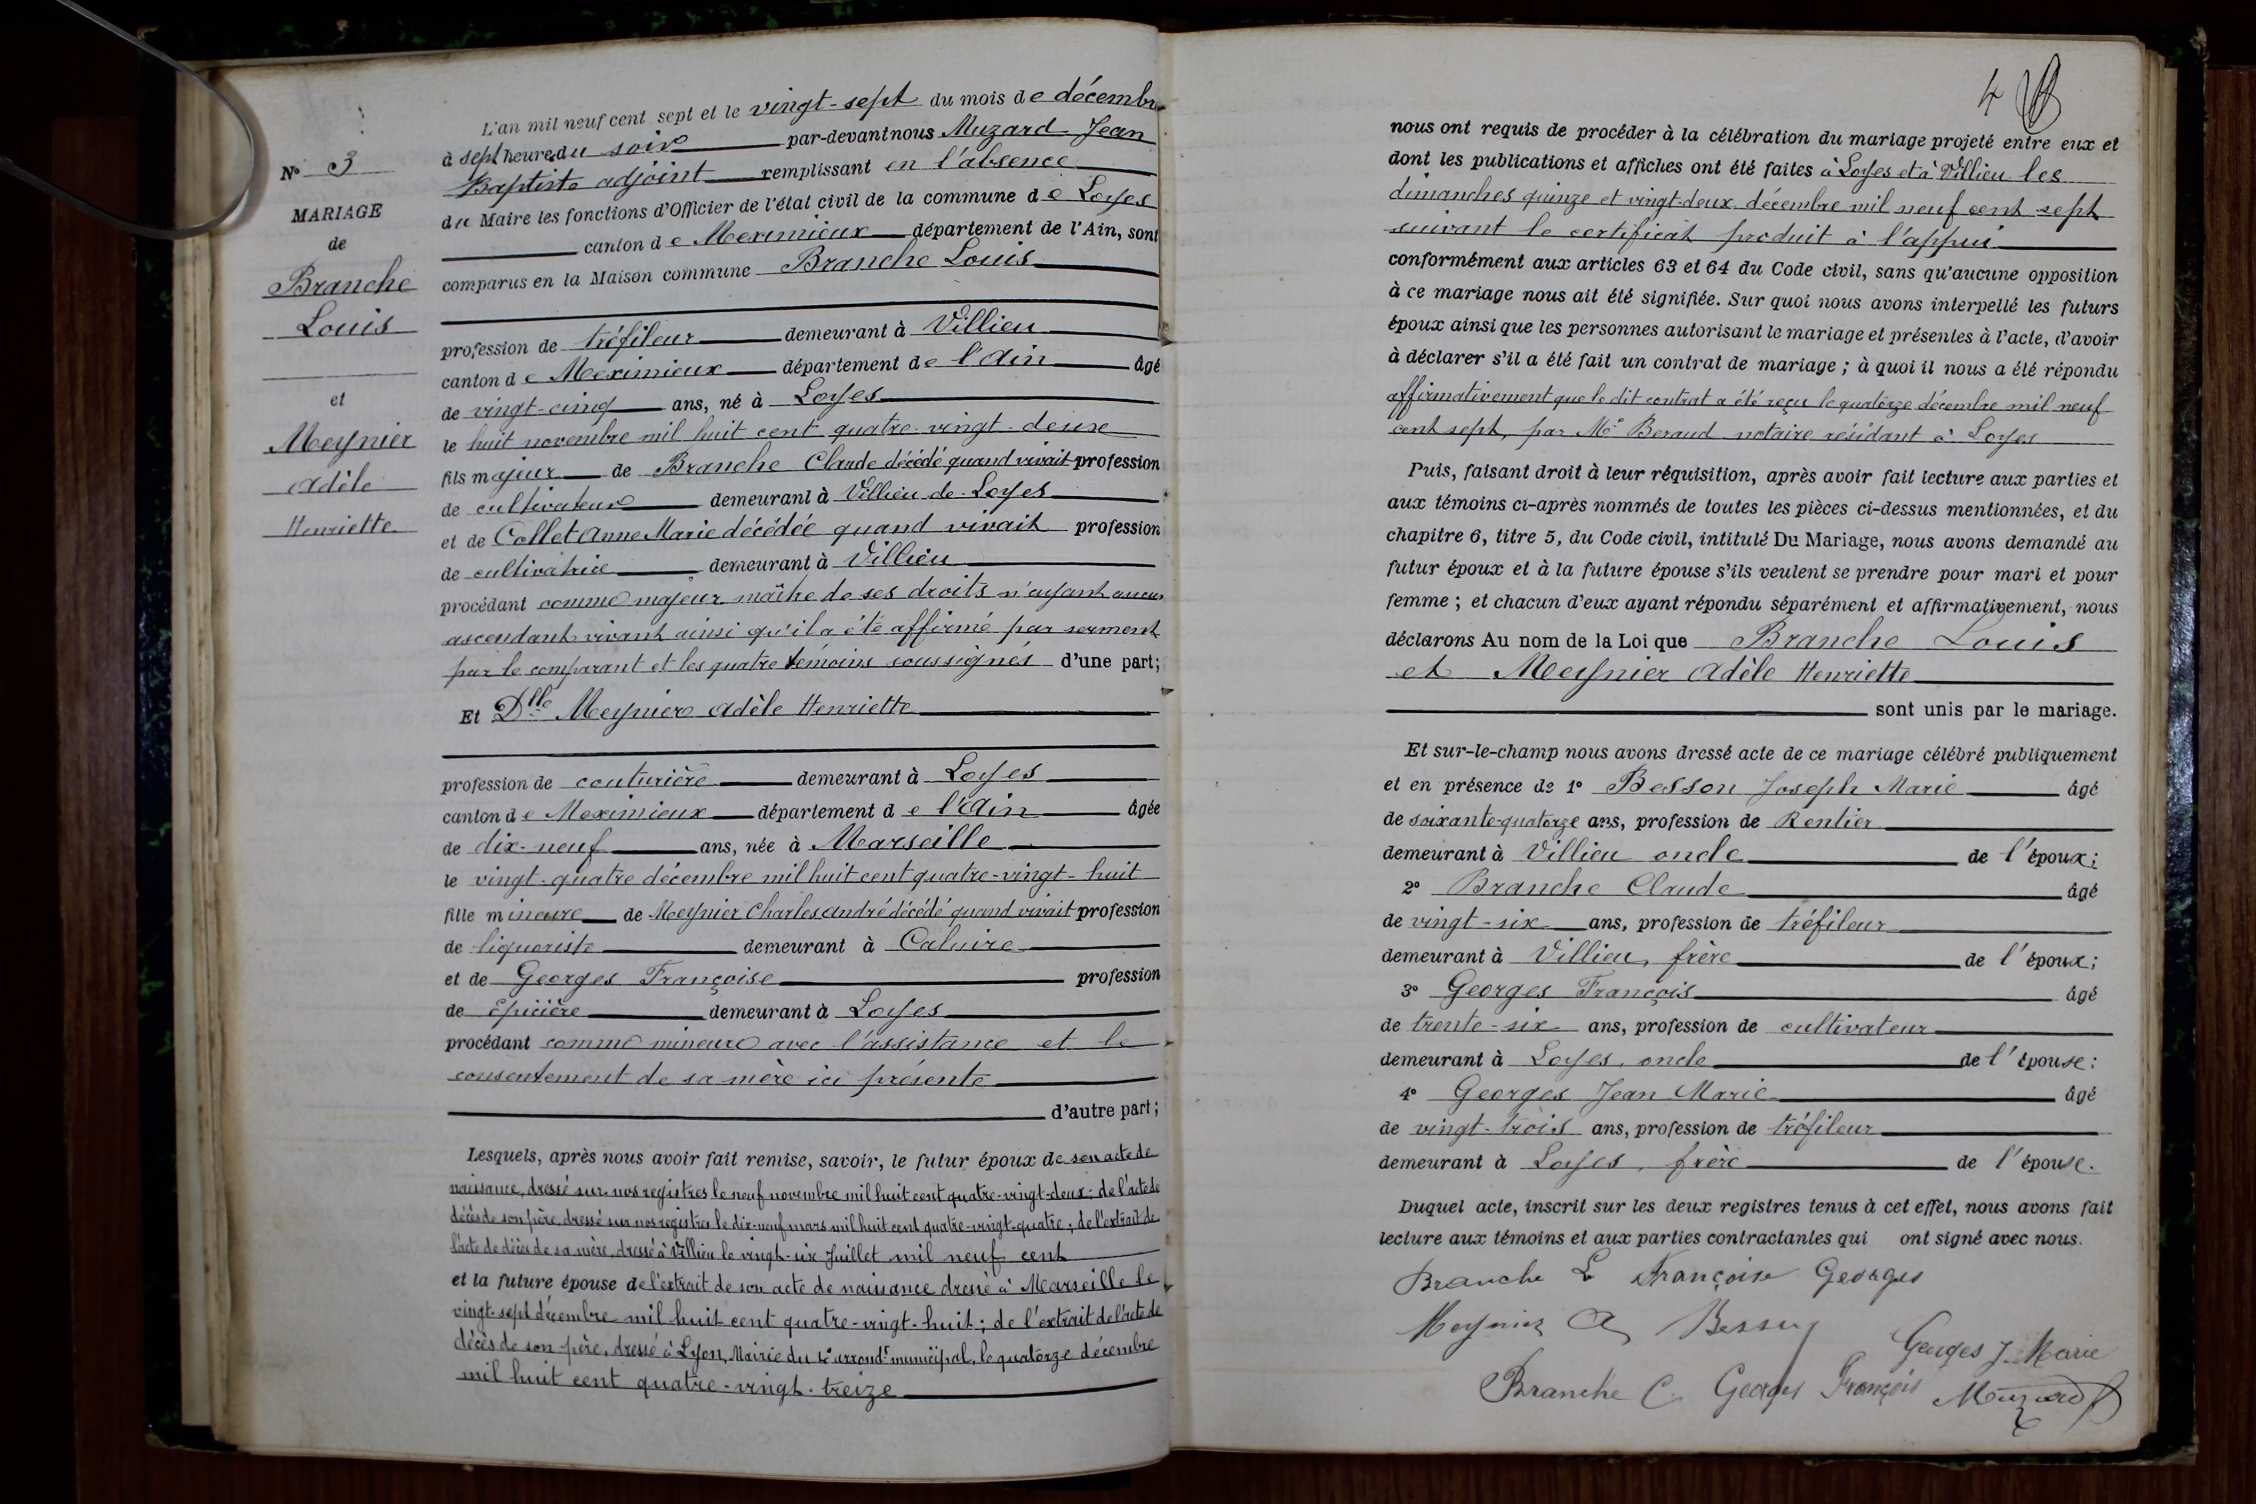 N° 3
MARIAGE
de
Branche
Louis
et
Meynier
Adèle
Henriette
L'an mil neuf cent sept et le vingt-sept du mois de décembre
à sept heures du soir par-devant nous Muzard Jean
Baptiste adjoint remplissant en l'absence
du Maire les fonctions d'Officier de l'état civil de la commune de Loyes
canton de Meximieux département de l'Ain, sont
comparus en la Maison commune Branche Louis
profession de tréfileur demeurant à Villieu
canton de Meximieux département de l'Ain âgé
de vingt-cinq ans, né à Loyes
le huit novembre mil huit cent quatre-vingt-deux
fils majeur de Branche Claude décédé quand vivait profession
de cultivateur demeurant à Villieu-de-Loyes
et de Collet Anne Marie décédée quand vivait profession
de cultivatrice demeurant à Villieu
procédant comme majeur maître de ses droits n'ayant aucun
ascendant vivant ainsi qu'il a été affirmé par serment
par le comparant et les quatre témoins soussignés d'une part;
Et Dlle Meynier Adèle Henriette
profession de couturière demeurant à Loyes
canton de Meximieux département de l'Ain âgée
de dix-neuf ans, née à Marseille
le vingt-quatre décembre mil huit cent quatre-vingt-huit
fille mineure de Meynier Charles André décédé quand vivait profession
de liquoriste demeurant à Caluire
et de Georges Françoise profession
de Epicière demeurant à Loyes
procédant comme mineure avec l'assistance et le
consentement de sa mère ici présente
d'autre part;
Lesquels, après nous avoir fait remise, savoir, le futur époux de son acte de
naissance, dressé sur nos registres le neuf novembre mil huit cent quatre-vingt-deux; de l'acte de
décès de son père, dressé sur nos registres le dix-neuf mars mil huit cent quatre-vingt-quatre; de l'extrait de
l'acte de décès de sa mère, dressé à Villieu le vingt-six Juillet mil neuf cent
et la future épouse de l'extrait de son acte de naissance dressé à Marseille le
vingt-sept décembre mil huit cent quatre-vingt-huit; de l'extrait de l'acte de
décès de son père, dressé à Lyon, Mairie du 4e arrondt municipal, le quatorze décembre
mil huit cent quatre-vingt-treize
4
nous ont requis de procéder à la célébration du mariage projeté entre eux et
dont les publications et affiches ont été faites à Loyes et à Villieu les
dimanches quinze et vingt-deux décembre mil neuf cent sept
suivant le certificat produit à l'appui
conformément aux articles 63 et 64 du Code civil, sans qu'aucune opposition
à ce mariage nous ait été signifiée. Sur quoi nous avons interpellé les futurs
époux ainsi que les personnes autorisant le mariage et présentes à l'acte, d'avoir
à déclarer s'il a été fait un contrat de mariage; à quoi il nous a été répondu
affirmativement que le dit contrat a été reçu le quatorze décembre mil neuf
cent sept, par Me Beraud notaire résidant à Loyes
Puis, faisant droit à leur réquisition, après avoir fait lecture aux parties et
aux témoins ci-après nommés de toutes les pièces ci-dessus mentionnées, et du
chapitre 6, titre 5, du Code civil, intitulé Du Mariage, nous avons demandé au
futur époux et à la future épouse s'ils veulent se prendre pour mari et pour
femme; et chacun d'eux ayant répondu séparément et affirmativement, nous
déclarons Au nom de la Loi que Branche Louis
et Meynier Adèle Henriette
sont unis par le mariage.
Et sur-le-champ nous avons dressé acte de ce mariage célébré publiquement
et en présence de 1° Besson Joseph Marie âgé
de soixante-quatorze ans, profession de Rentier
demeurant à Villieu oncle de l'époux;
2° Branche Claude âgé
de vingt-six ans, profession de tréfileur
demeurant à Villieu, frère de l'époux;
3° Georges François âgé
de trente-six ans, profession de cultivateur
demeurant à Loyes, oncle de l'épouse:
4° Georges Jean Marie âgé
de vingt-trois ans, profession de tréfileur
demeurant à Loyes, frère de l'épouse.
Duquel acte, inscrit sur les deux registres tenus à cet effet, nous avons fait
lecture aux témoins et aux parties contractantes qui ont signé avec nous.
Branche L Françoise Georges
Meynier A Besson
Georges J. Marie
Branche C Georges François Muzard